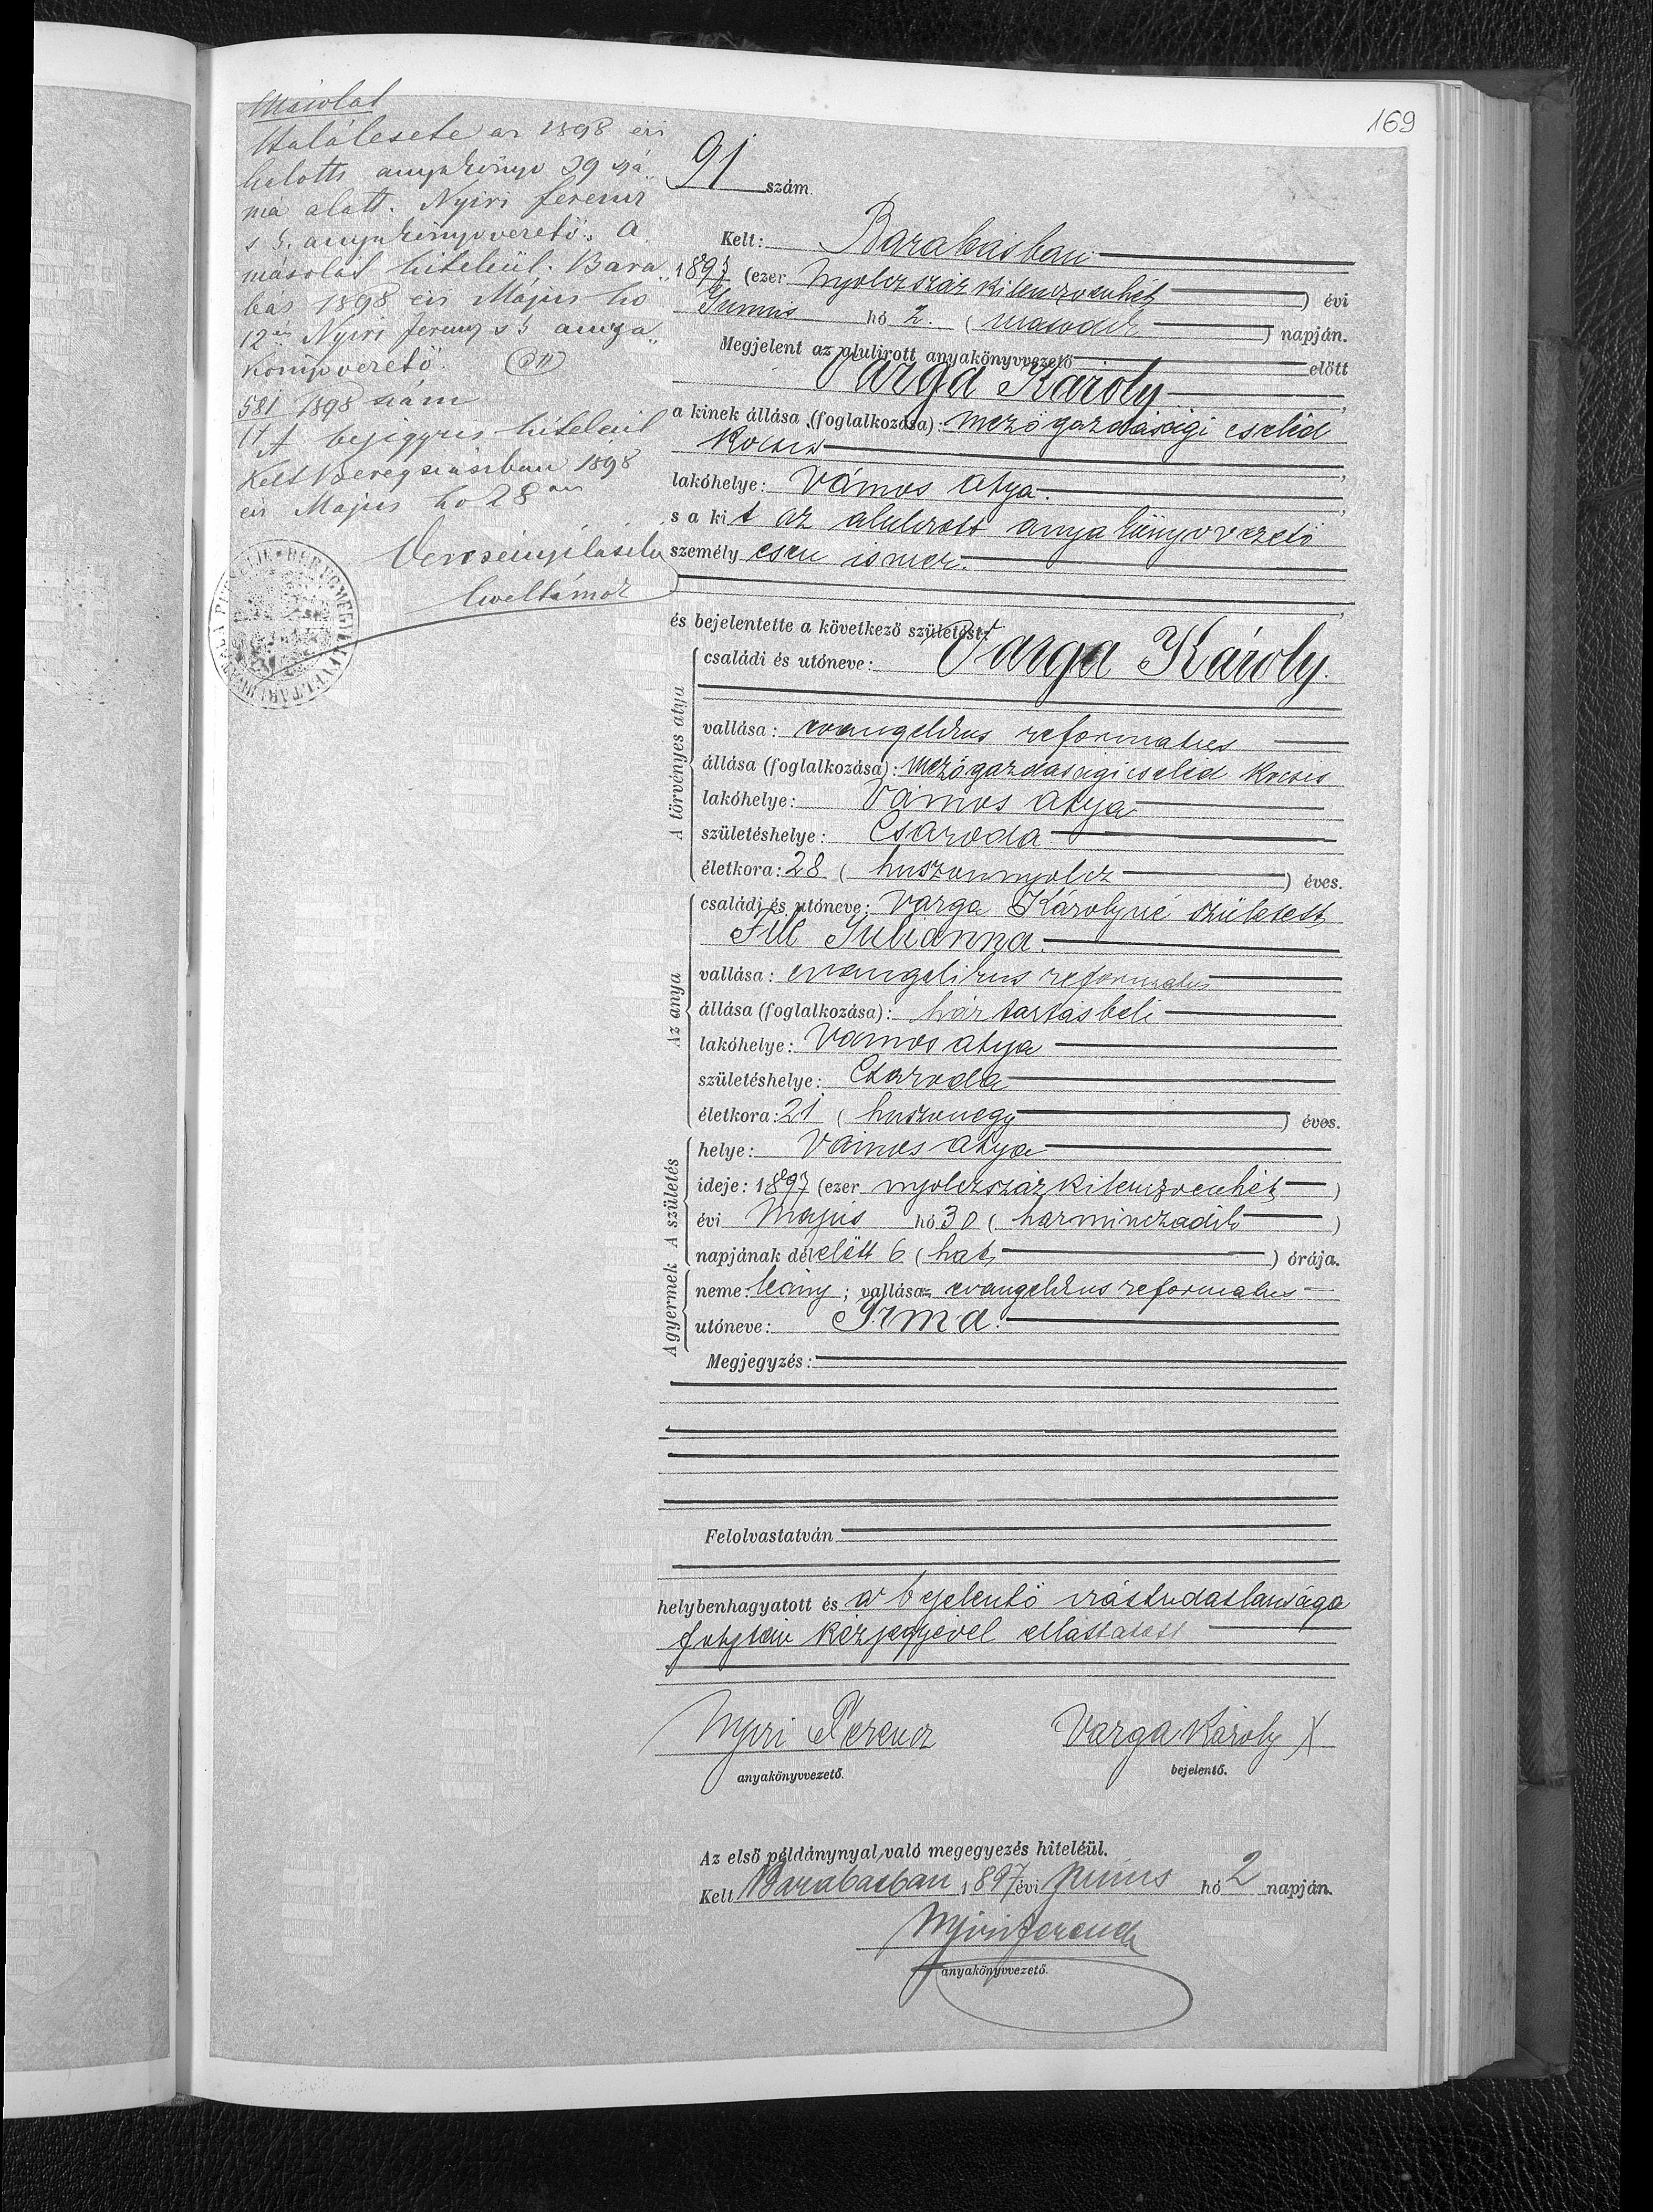 169
Másolat
Halálesete az 1898 évi
halotti anyakönyv 29 szá„
má alatt. Nyiri Ferencz
s k. anyakönyvvezető. A
másolat hiteléül. Bara„
bás 1898 évi Május hó
12én Nyiri Ferencz s k anya„
könyvvezető.
581/1898 szám
bejegyzés hiteléül
Kelt Beregszászban 1898
évi Május hó 28án
levéltárnok
91 szám.
Kelt: Barabásban
1897 (ezer nyolczszáz kilenczvenhét) évi
Junius hó 2. (második) napján.
Megjelent az alulirott anyakönyvvezető előtt
Varga Károly,
a kinek állása (foglalkozása): mezőgazdasági cseléd
kocsis,
lakóhelye: Vámos atya.,
s a kit az alulirott anyakönyvvezető
személyesen ismer.
és bejelentette a következő születést:
A törvényes atya
családi és utóneve: Varga Károly.
vallása: evangelikus reformatus
állása (foglalkozása): mezőgazdasági cseléd kocsis
lakóhelye: Vámos atya
születéshelye: Csaroda
életkora: 28 (huszonnyolcz) éves.
Az anya
családi és utóneve: Varga Károlyné született
Fill Julianna.
vallása: evangelikus reformatus
állása (foglalkozása): háztartásbeli
lakóhelye: Vámos atya
születéshelye: Csaroda
életkora: 21 (huszonegy) éves.
A születés
helye: Vámos atya
ideje: 1897 (ezer nyolczszáz kilenczvenhét)
évi Május hó 30 (harminczadik)
napjának délelőtt 6 (hat) órája.
A gyermek
neme: leány; vallása: evangelikus reformatus
utóneve: Irma.
Megjegyzés:
Felolvastatván
helybenhagyatott és a bejelentő irástudatlansága
folytán kézjegyével elláttatott
Nyiri Ferencz Varga Károly X
anyakönyvvezető. bejelentő.
Az első példánynyal való megegyezés hiteléül.
Kelt Barabásban 1897 évi Junius hó 2 napján.
Nyiri Ferencz
anyakönyvvezető.